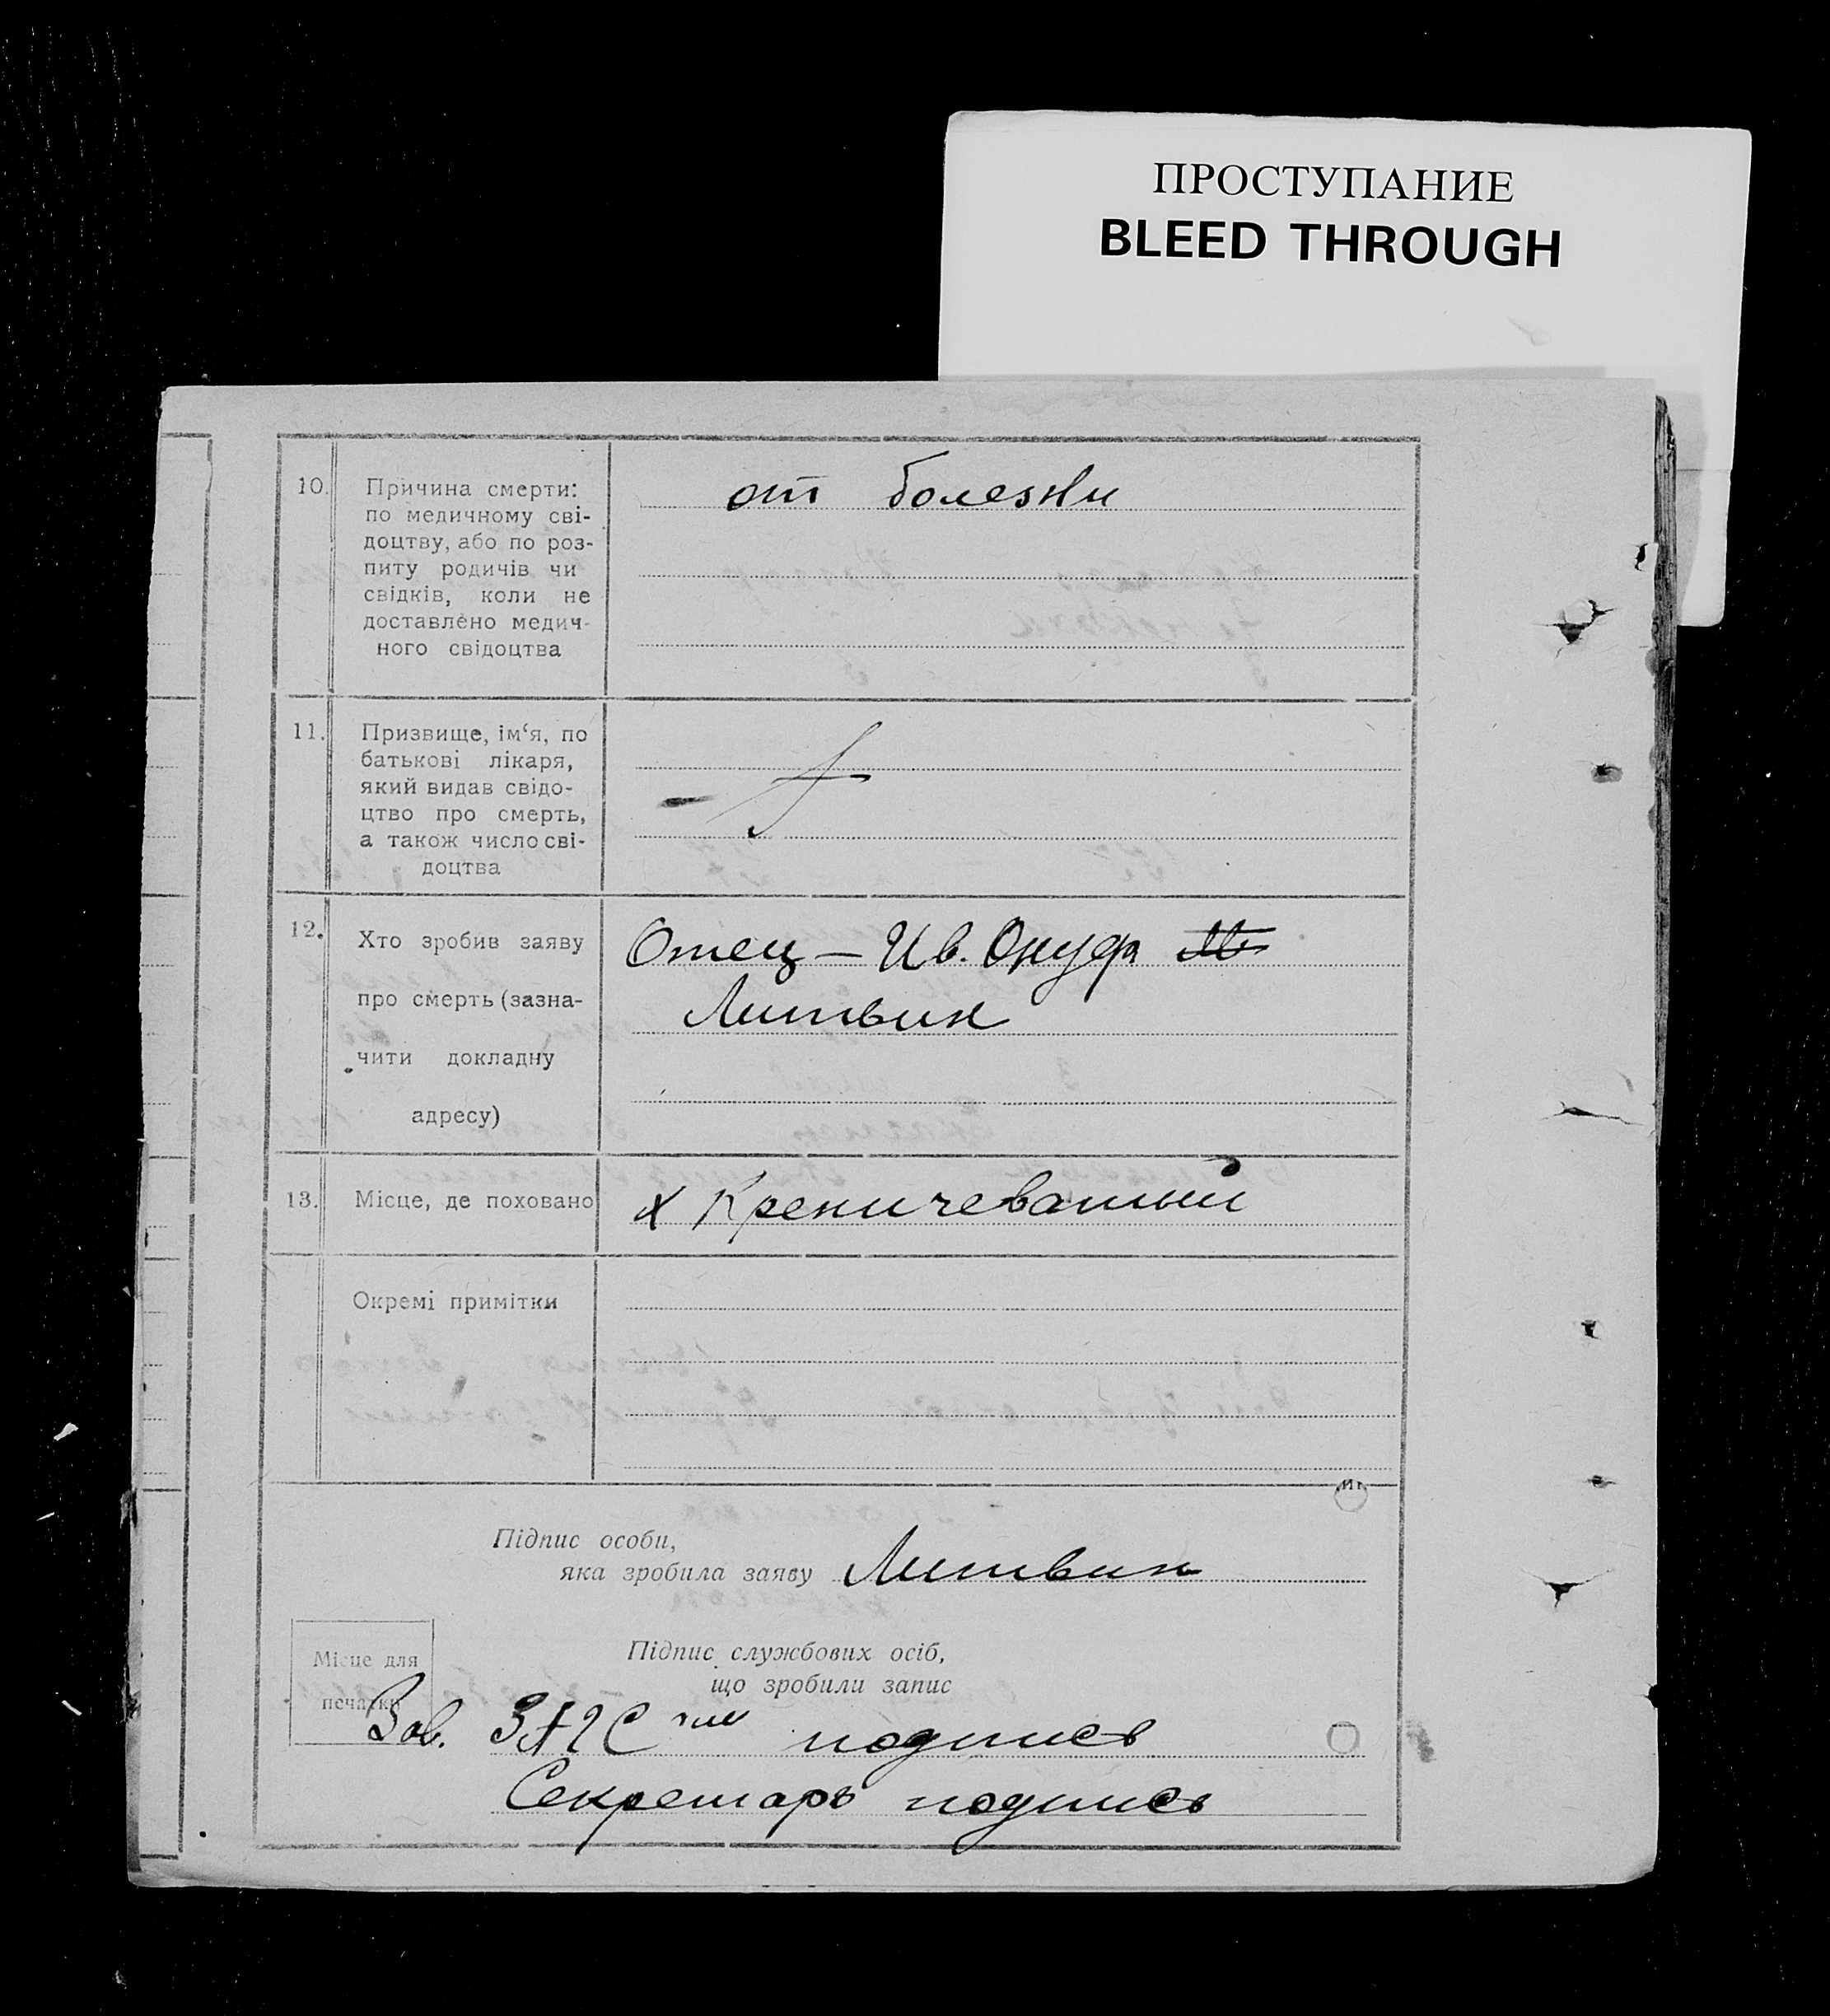 ПРОСТУПАНИЕ
BLEED THROUGH
10. Причина смерти:
по медичному сві-
доцтву, або по роз-
питу родичів чи
свідків, коли не
доставлено медич-
ного свідоцтва
от болезни
11. Призвище, ім‘я, по
батькові лікаря,
який видав свідо-
цтво про смерть,
а також число сві-
доцтва
12. Хто зробив заяву
про смерть (зазна-
чити докладну
адресу)
Отец – Ив. Онуфр
Литвин
13. Місце, де поховано
х Креничеватый
Окремі примітки
Підпис особи,
яка зробила заяву Литвин
Місце для
печатки
Підпис службових осіб,
що зробили запис
Зав. ЗАГС подпись
Секретарь подпись